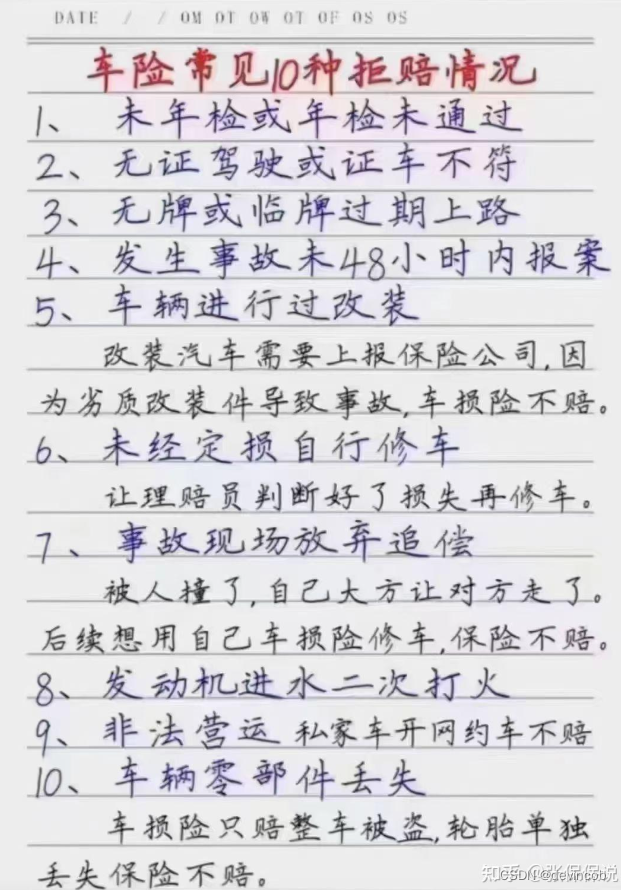 DATE / / OM OT OW OT OF OS OS
车险常见10种拒赔情况
1、未年检或年检未通过
2、无证驾驶或证车不符
3、无牌或临牌过期上路
4、发生事故未48小时内报案
5、车辆进行过改装
改装汽车需要上报保险公司,因
为劣质改装件导致事故,车损险不赔。
6、未经定损自行修车
让理赔员判断好了损失再修车。
7、事故现场放弃追偿
被人撞了,自己大方让对方走了。
后续想用自己车损险修车,保险不赔。
8、发动机进水二次打火
9、非法营运 私家车开网约车不赔
10、车辆零部件丢失
车损险只赔整车被盗,轮胎单独
丢失保险不赔。
CSDN @devincob